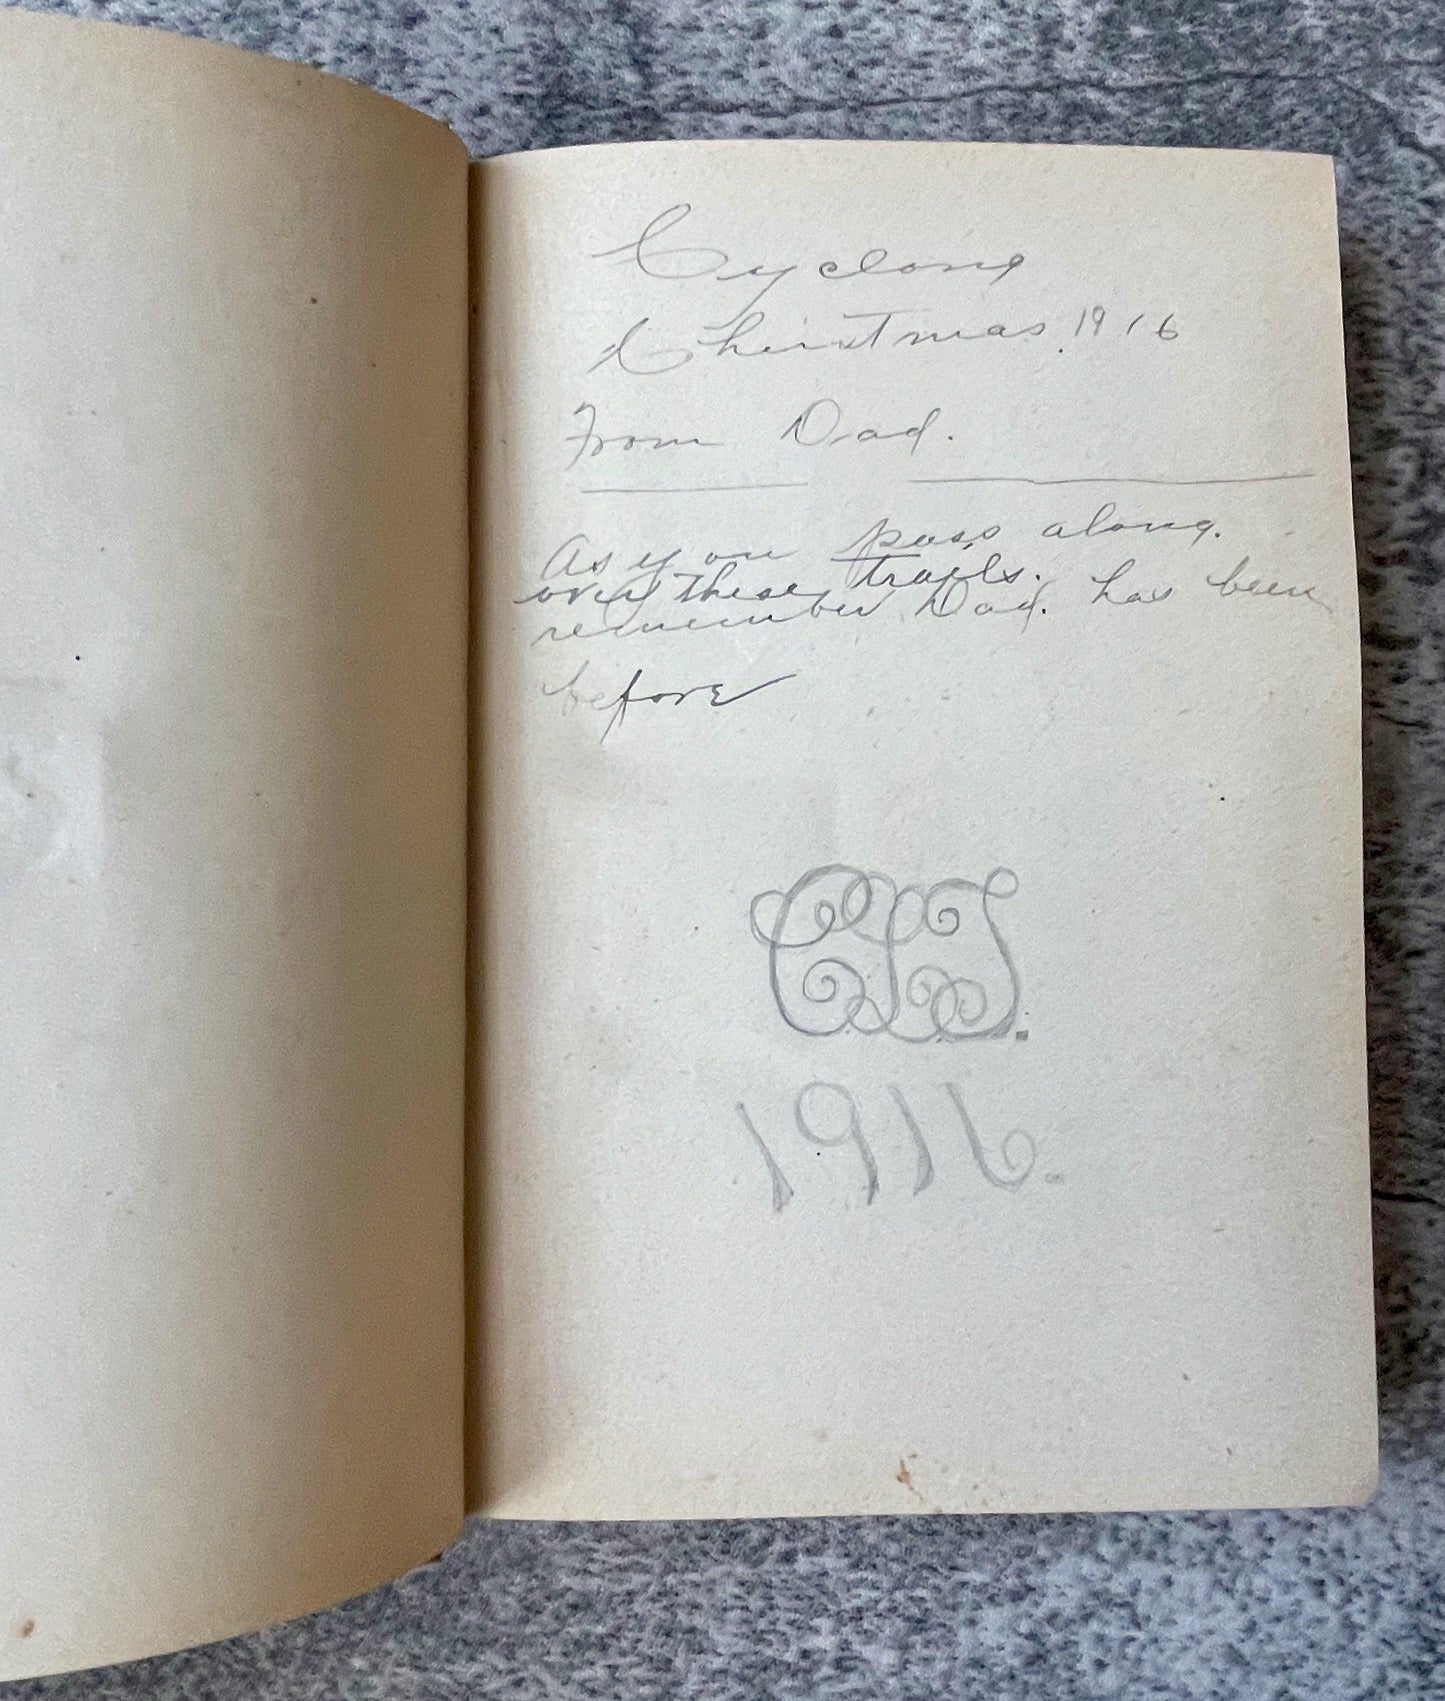 Cyclone
Christmas. 1916
From Dad.
As you pass along.
over these trails.
remember Dad. has been
before
1916.